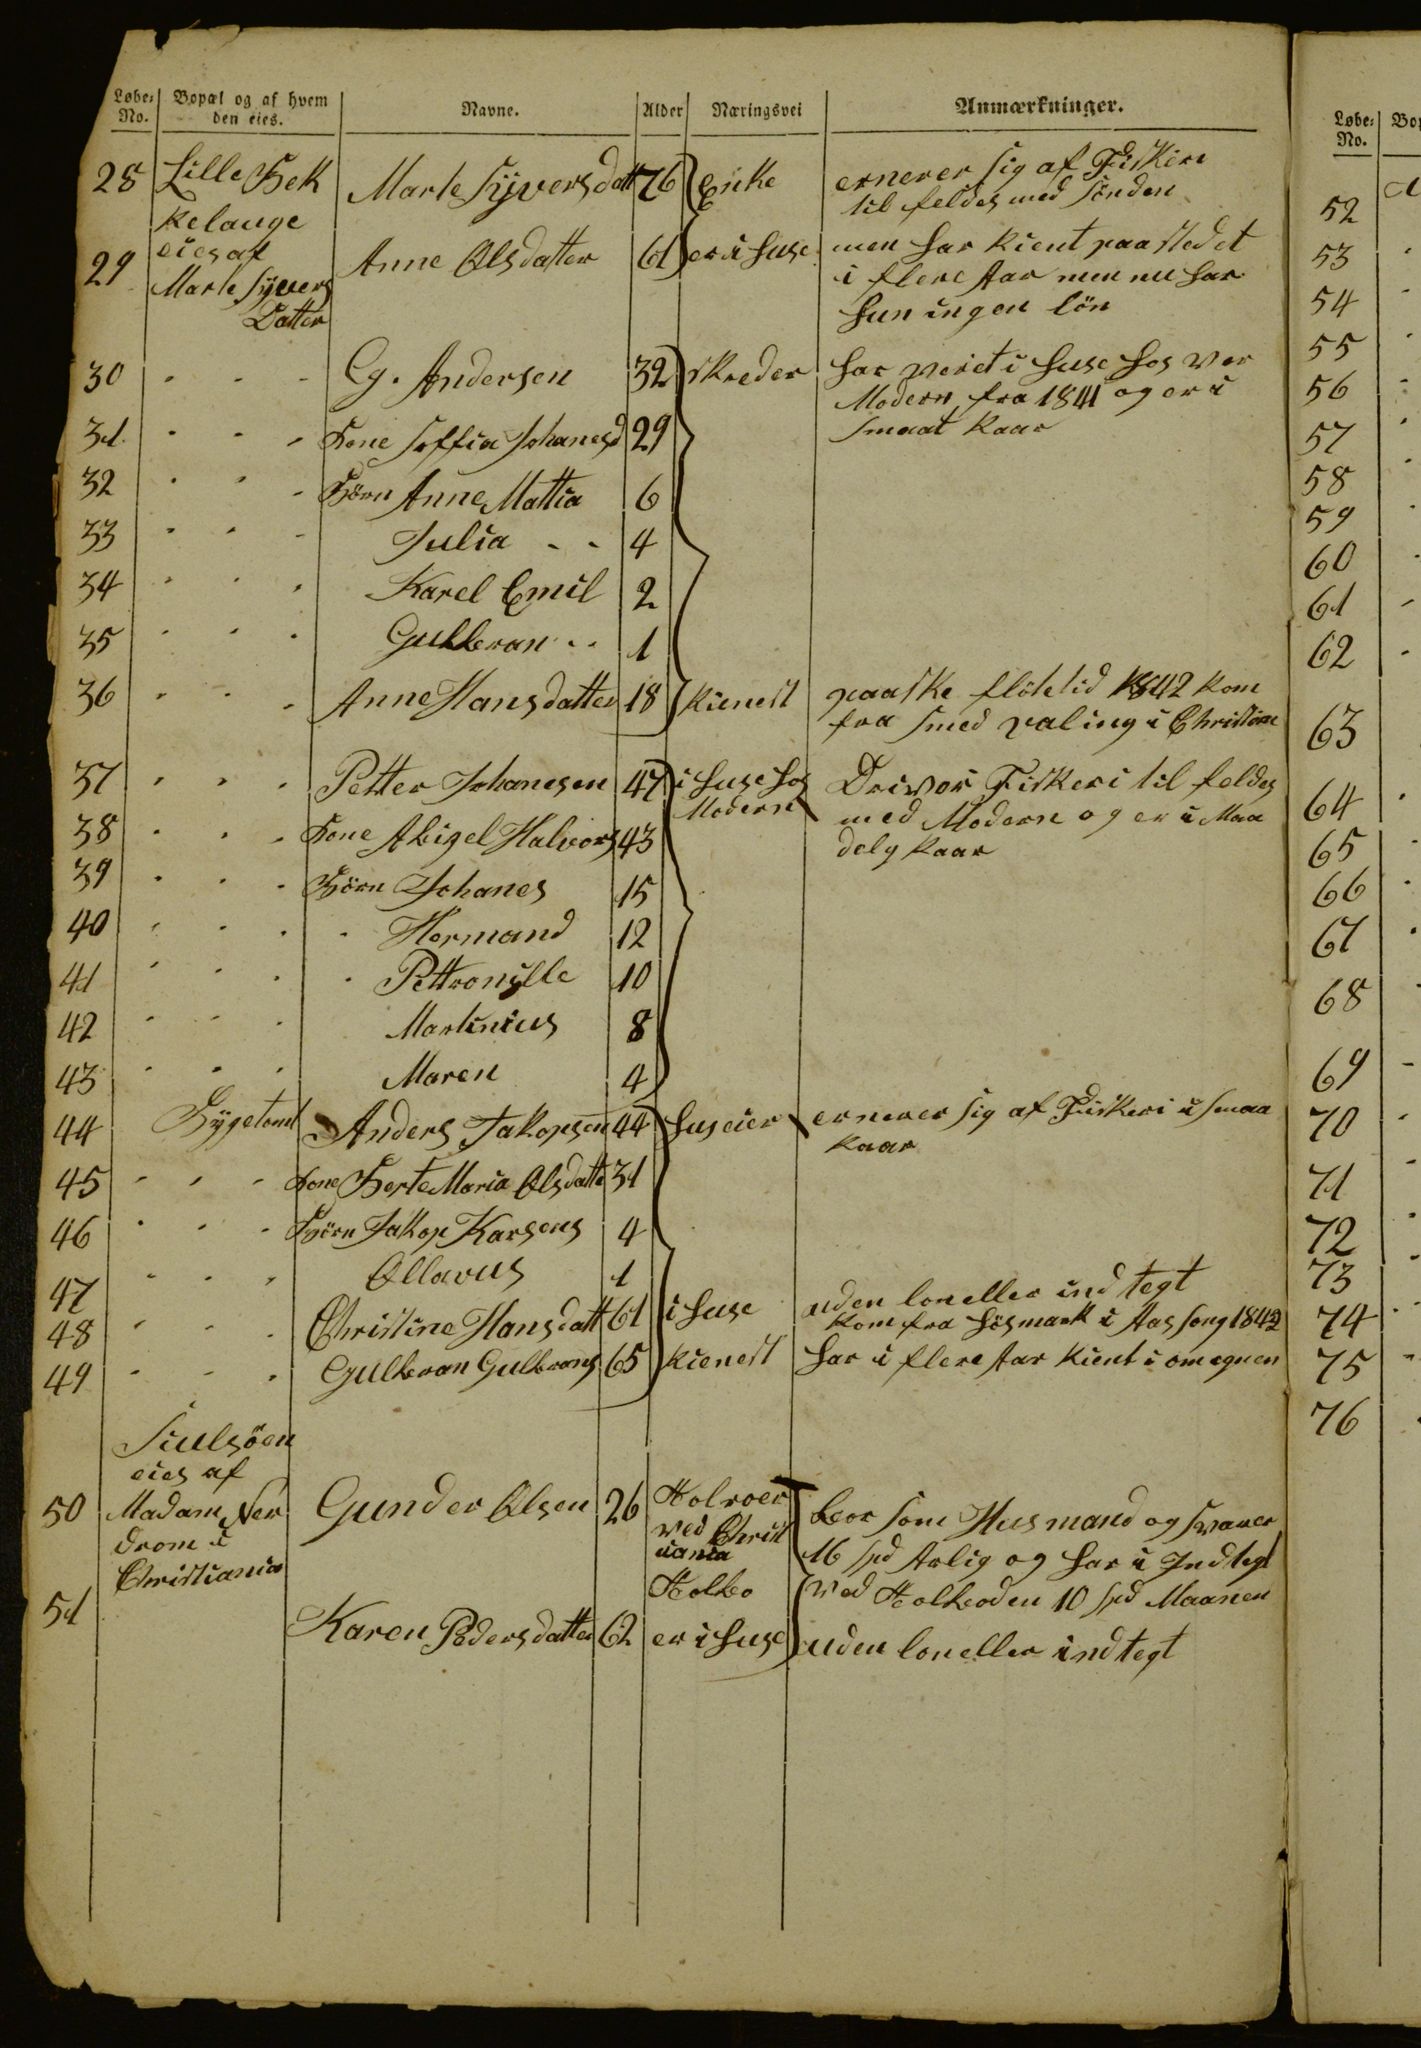 Løbe-No. Bopæl og af hvem den eies. Navne. Alder Næringsvei Anmærkninger.
28 Lille Bek Marte Syversdatt 76 Enke ernerer sig af Fiskere
kelauge til feldes med sönden
29 eies af Anne Olsdatter 61 er i huse men har tient paa stedet
Marte Syvers i flere Aar men nu har
Datter hun ingen lön
30 - - - G. Andersen 32 skreder har veret i huse hos vor
Modern fra 1841 og er i
31 - - - Kone Soffia Johanesd 29 smaat kaar
32 - - - Börn Anne Mattia 6
33 - - - Julia - - 4
34 - - - Karel Emil 2
35 - - - Gulbran - - 1
36 - - - Anne Hansdatter 18 tienest paaske flötetid 1842 kom
fra smed valing i Christiane
37 - - - Petter Johanesen 47 i huse hos Driver Fiskeri til feldes
Modern med Modern og er i Maa
38 - - - Kone Abigel Halvors 43 delg kaar
39 - - - Börn Johanes 15
40 - - - - Hermand 12
41 - - - - Pettronille 10
42 - - - Martinius 8
43 - - - Maren 4
44 Bygetomt Anders Jakopsen 44 huseier ernerer sig af Fiskeri i smaa
kaar
45 - - - Kone Berte Maria Olsdatte 31
46 - - - Börn Jakop Karsens 4
47 - - - Ollavus 1
48 - - - Christine Hansdatt 61 i huse uden lon eller indtegt
kom fra hösmark i Aas song 1842
49 - - - Gulbran Gulbrans 65 tienest har i flere Aar tient i omegnen
Siulsöen
eies af
50 Madam Ner Gunder Olsen 26 Tolroer bor som Husmand og svarer
drom i ved Christ 16 spd Arlig og har i Indtegt
Christiania iania
Tolbo ved Tolboden 10 spd Maanen
51 Karen Pedersdatter 62 er i huse uden lon eller indtegt
Løbe-No.
52
53
54
55
56
57
58
59
60
61
62
63
64
65
66
67
68
69
70
71
72
73
74
75
76